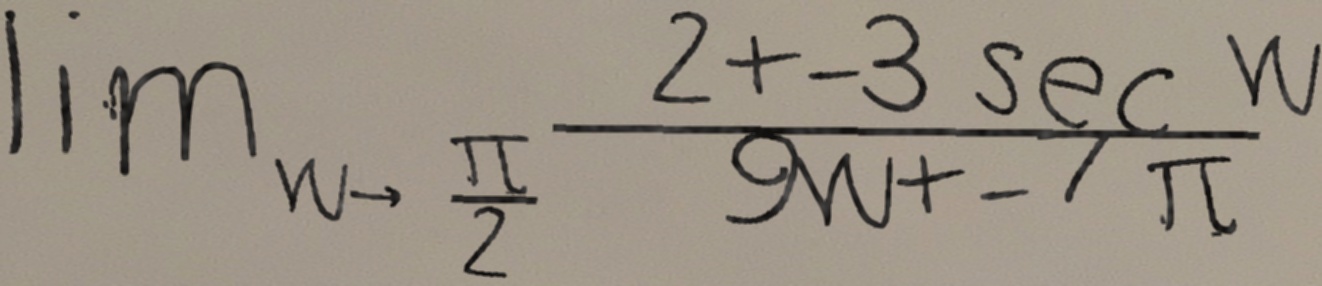 lim_{w→ \frac{π}{2}} \frac{2+-3 sec w}{9w+-7π}